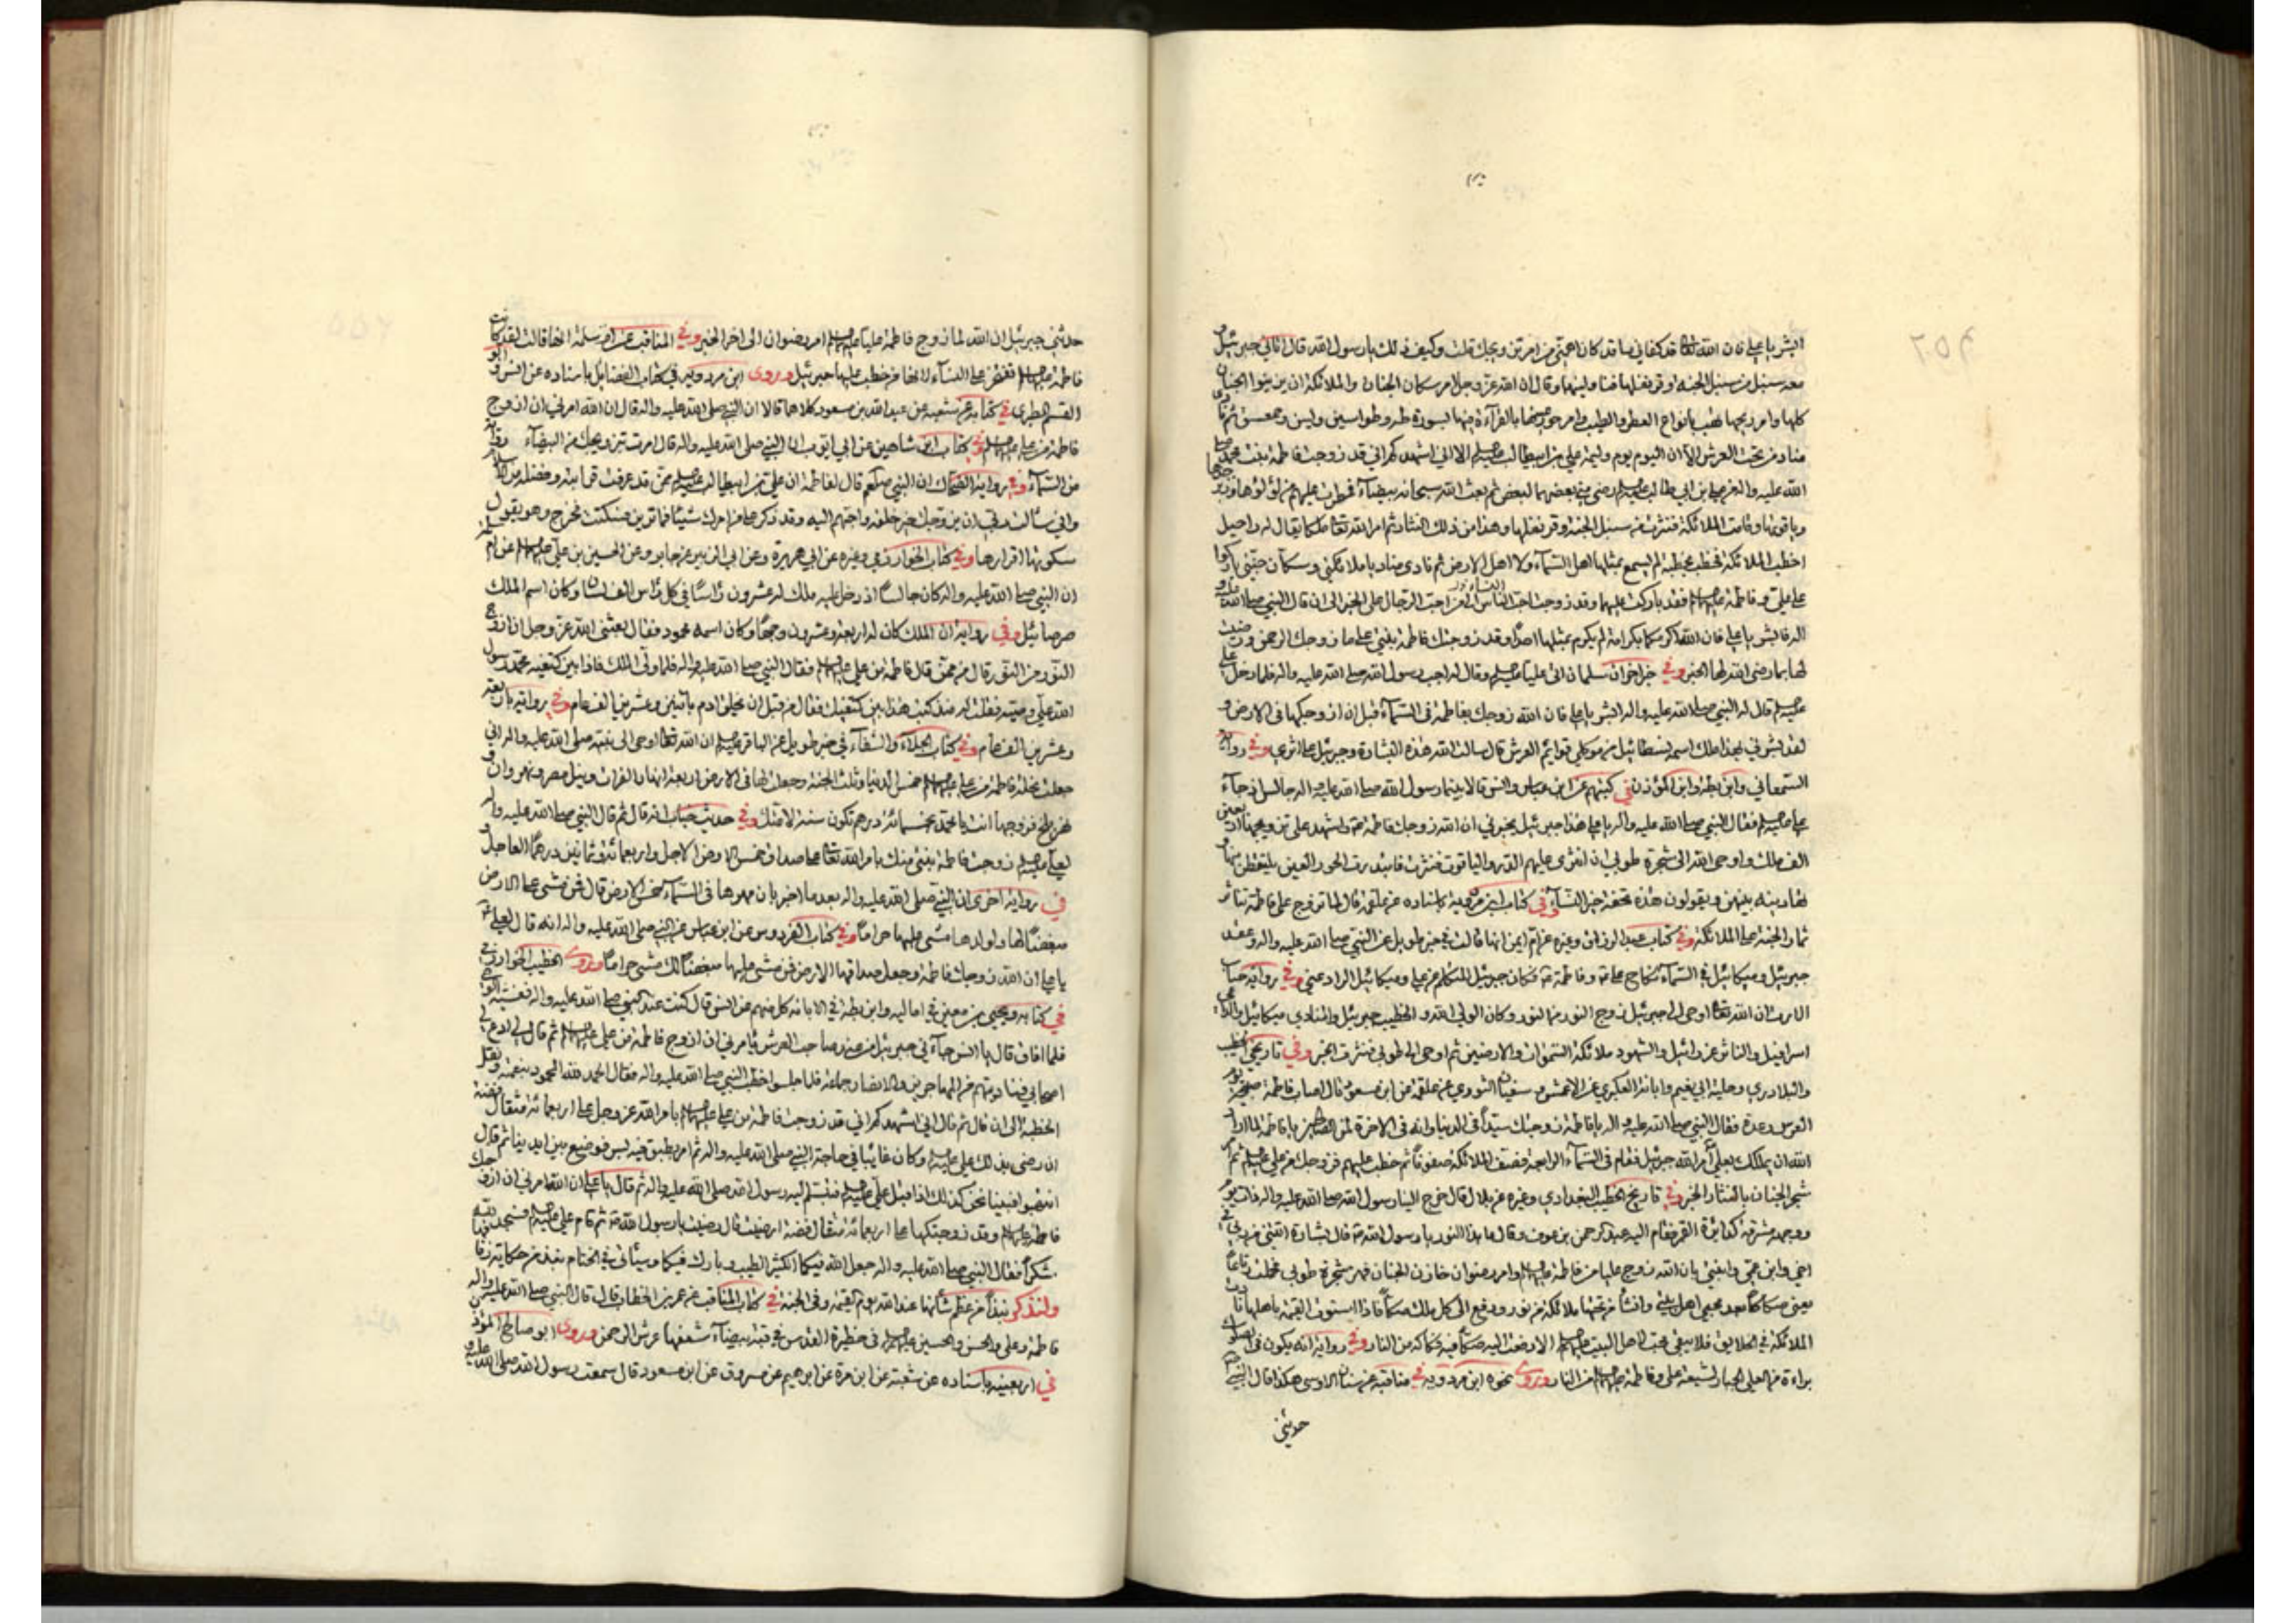 ابشر يا علي فان الله تعالى قد كفاني ما قد كان اهمني من امر تزويجك قلت وكيف ذلك يا رسول الله قال اتاني جبرئيل و
معه سنبل من سنبل الجنة وقرنفلها فناولنيهما وقال ان الله عز وجل امر سكان الجنان والملائكة ان يزينوا الجنان
كلها وامر ريحها فهبت بانواع العطر والطيب وامر حور عينها بالقراءة فيها بسورة طه وطواسين ويس وحمعسق ثم نادى
مناد من تحت العرش الا ان اليوم يوم وليمة علي بن ابيطالب الا اني اشهدكم اني قد زوجت فاطمة بنت محمد صلى
الله عليه واله من علي بن ابي طالب رضى مني بعضهما لبعض ثم بعث الله سبحانه بيضاء فقطرت عليهم من لؤلؤها وزبرجدها
وياقوتها وقامت الملائكة فنثرت من سنبل الجنة وقرنفلها وهذا من ذلك النثار ثم امر الله تعالى ملكا يقال له راحيل
اخطب الملائكة فخطب بخطبة لم يسمع بمثلها اهل السماء ولا اهل الارض ثم نادى مناد يا ملائكتي وسكان جنتي باركوا
على علي وفاطمة فقد باركت عليهما وقد زوجت احب النساء الي من احب الرجال علي الخبر الى ان قال النبي صلى الله عليه و
اله فابشر يا علي فان الله اكرمك بكرامة لم يكرم بمثلها احدا وقد زوجتك فاطمة بنتي على ما زوجك الرحمن ورضيت
لها بما رضى الله لها الخبر وفي خبر اخر ان سلمان اتى عليا وقال له اجب رسول الله صلى الله عليه واله فلما دخل علي
قال له النبي صلى الله عليه واله ابشر يا علي فان الله زوجك بفاطمة في السماء قبل ان ازوجكها في الارض و
لقد بشرني بهذا ملك اسمه نسطائيل من موكلي قوائم العرش قال سالت الله هذه البشارة وجبرئيل على اثري وفي رواية
السمعاني وابن بطة وابن المؤذن في كتبهم عن ابن عباس وانس قالا بينما رسول الله صلى الله عليه واله جالس اذ جاء
علي فقال النبي صلى الله عليه واله يا علي هذا جبرئيل يخبرني ان الله زوجك فاطمة واشهد على تزويجها اربعين
الف ملك واوحى الله الى شجرة طوبى ان انثري عليهم الدر والياقوت فنثرت فابتدرت الحور العين يلتقطن منها و
يتهادينه بينهن ويقولون هذه تحفة خير النساء وفي كتاب ابن مردويه باسناده عن علقمة قال لما تزوج علي فاطمة تناثر
ثمار الجنة على الملائكة وفي كتاب عبد الرزاق وغيره عن ام ايمن انها قالت في خبر طويل عن النبي صلى الله عليه واله وعقد
جبرئيل وميكائيل في السماء نكاح علي وفاطمة فكان جبرئيل المتكلم عن علي وميكائيل الراد عني وفي رواية خباب
الارت ان الله تعالى اوحى الى جبرئيل زوج النور من النور وكان الولي الله والخطيب جبرئيل والمنادي ميكائيل والداعي
اسرافيل والناثر عزرائيل والشهود ملائكة السموات والارضين ثم اوحى الى طوبى فنثرت الخبر وفي تاريخي الخطيب
والبلاذري وحلية ابي نعيم وابانة العكبري عن الاعمش وسفيان الثوري عن علقمة عن ابن مسعود قال اصاب فاطمة صبيحة يوم
العرس رعدة فقال النبي صلى الله عليه واله يا فاطمة زوجتك سيدا في الدنيا وانه في الاخرة لمن الصالحين يا فاطمة لما اراد
الله ان يملكك بعلي امر الله جبرئيل فقام في السماء الرابعة فصف الملائكة صفوفا ثم خطب عليهم فزوجك من علي ثم امر
شجر الجنان بالنثار الخبر وفي تاريخ الخطيب البغدادي وغيره عن بلال قال خرج الينا رسول الله صلى الله عليه واله ذات يوم
ووجهه مشرقة كدائرة القمر فقام اليه عبد الرحمن بن عوف وقال ما هذا النور يا رسول الله قال بشارة اتتني من ربي في
اخي وابن عمي وابنتي بان الله زوج عليا من فاطمة وامر رضوان خازن الجنان فهز شجرة طوبى فحملت رقاعا
يعني صكاكا بعدد محبي اهل بيتي وانشأ من تحتها ملائكة من نور ودفع الى كل ملك صكا فاذا استوت القيمة باهلها نادت
الملائكة في الخلايق فلا يبقى محب لاهل البيت الا دفعت اليه صكا فيه فكاكه من النار وفي رواية انه يكون في الصكوك
براءة من العلي الجبار لشيعة علي وفاطمة من النار وروى نحوه ابن مردويه في مناقبه عن سنان الاوسي هكذا قال النبي
حدثني
حدثني جبرئيل ان الله لما زوج فاطمة عليا امر رضوان الى اخر الخبر وفي المناقب عن ام سلمة انها قالت لقد كانت
فاطمة تفتخر على النساء لانها من خطب عليها جبرئيل وروى ابن مردويه في كتاب الفضايل باسناده عن انس و ابو
القسم الطبري في كتابه عن شعبة عن عبد الله بن مسعود كلاهما قالا ان النبي صلى الله عليه واله قال ان الله امرني ان ازوج
فاطمة من علي وفي كتاب ابن شاهين عن ابي ايوب ان النبي صلى الله عليه واله قال امرت بتزويجك من البيضاء
من السماء وفي رواية الضحاك ان النبي صلعم قال لفاطمة ان علي بن ابيطالب ممن قد عرفت قرابته وفضله من الاسلام
واني سالت ربي ان يزوجك خير خلقه واحبهم اليه وقد ذكر من امرك شيئا فما ترين فسكتت فخرج وهو يقول
سكوتها اقرارها وفي كتاب الخوارزمي وغيره عن ابي هريرة وعن ابي الزبير عن جابر وعن الحسين بن علي عن ام سلمة
ان النبي صلى الله عليه واله كان جالسا اذ دخل عليه ملك له عشرون راسا في كل راس الف لسان وكان اسم الملك
صرصائيل وفي رواية ان الملك كان له اربعة وعشرون وجها وكان اسمه محمود فقال بعثني الله عز وجل ان ازوج
النور من النور قال من ممن قال فاطمة من علي فقال النبي صلى الله عليه واله فلما ولى الملك فاذا بين كتفيه محمد رسول
الله علي وصيه فقلت له منذ كتب هذا بين كتفيك فقال من قبل ان يخلق ادم باثنين وعشرين الف عام وفي رواية باربعة
وعشرين الف عام وفي كتاب الجلاء والشفاء في خبر طويل عن الباقر ان الله تعالى اوحى الى نبيه صلى الله عليه واله اني
جعلت نحلة فاطمة من علي خمس الدنيا وثلث الجنة وجعلت لها في الارض اربعة انهار الفرات ونيل مصر ونهروان و
نهر بلخ فزوجها انت يا محمد بخمسمائة درهم تكون سنة لامتك وفي حديث خباب انه قال ثم قال النبي صلى الله عليه واله
لعلي زوجت فاطمة ابنتي منك بامر الله تعالى على صداق خمس الارض الاجل واربعمائة وثمانين درهما العاجل و
في رواية اخرى ان النبي صلى الله عليه واله بعد ما اخبر بان مهرها في السماء خمس الارض قال فمن مشى على الارض
مبغضا لها ولولدها مشى عليها حراما وفي كتاب الفردوس عن ابن عباس عن النبي صلى الله عليه واله انه قال لعلي
يا علي ان الله زوجك فاطمة وجعل صداقها الارض فمن مشى عليها مبغضا لك مشى حراما وروى الخطيب الخوارزمي
في كتابه ويحيى بن معين في اماليه وابن بطة في الابانة كل منهم عن انس قال كنت عند النبي صلى الله عليه واله فغشيه الوحي
فلما افاق قال يا انس جاءني جبرئيل من عند صاحب العرش يامرني ان ازوج فاطمة من علي ثم قال لي ادع لي
اصحابي فناديتهم من المهاجرين والانصار جماعة فلما جلسوا خطب النبي صلى الله عليه واله فقال الحمد لله المحمود بنعمته ونقل
الخطبة الى ان قال ثم قال اني اشهدكم اني قد زوجت فاطمة من علي بامر الله عز وجل على اربعمائة مثقال فضة
ان رضى بذلك علي وكان غايبا في حاجة النبي صلى الله عليه واله ثم امر بطبق فيه بسر فوضع بين ايدينا ثم قال
انتهبوا فبينا نحن كذلك اذ اقبل علي فتبسم اليه رسول الله صلى الله عليه واله ثم قال يا علي ان الله امرني ان ازوجك
فاطمة وقد زوجتكها على اربعمائة مثقال فضة ارضيت قال رضيت يا رسول الله ثم قام علي فسجد لله
شكرا فقال النبي صلى الله عليه واله جعل الله فيكما الكثير الطيب وبارك فيكما وسيأتي في الختام نبذ من حكاية زفافها
ولنذكر نبذا من عظم شأنهما عند الله يوم القيمة وفي الجنة في كتاب المناقب عن عمر بن الخطاب قال قال النبي صلى الله عليه واله
فاطمة وعلي والحسن والحسين في حظيرة القدس في قبة بيضاء سقفها عرش الرحمن وروى ابو صالح المؤذن
في اربعينه باسناده عن شعبة عن ابن مرة عن ابرهيم عن مسروق عن ابن مسعود قال سمعت رسول الله صلى الله عليه و